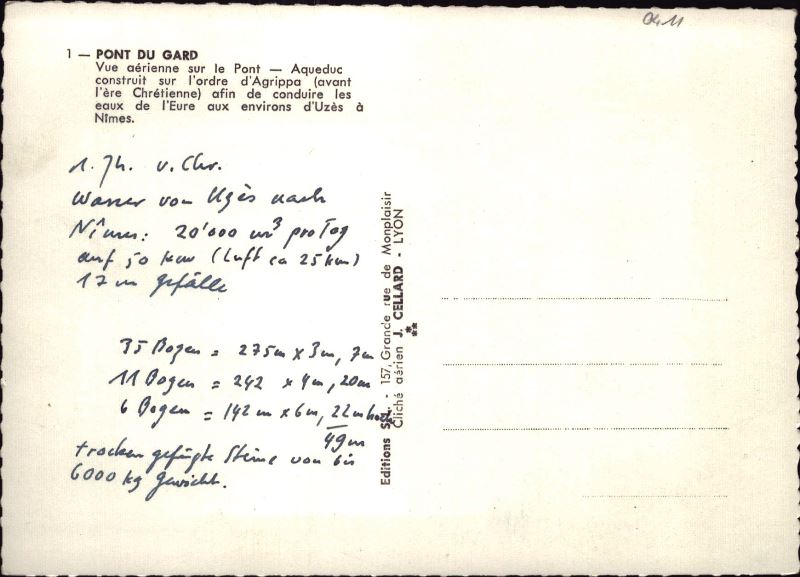 04.11
1 — PONT DU GARD
Vue aérienne sur le Pont — Aqueduc
construit sur l'ordre d'Agrippa (avant
l'ère Chrétienne) afin de conduire les
eaux de l'Eure aux environs d'Uzès à
Nîmes.
1. Jh. v. Chr.
Wasser von Uzès nach
Nîmes: 20'000 m³ pro Tag
auf 50 km (Luft ca 25 km)
17 m Gefälle
35 Bogen = 275m x 3m, 7m
11 Bogen = 242 x 4m, 20m
6 Bogen = 142m x 6m, 22m hoch
49m
trocken gefügte Steine von bis
6000 kg Gewicht.
Editions - 157, Grande rue de Monplaisir
Cliché aérien J. CELLARD - LYON